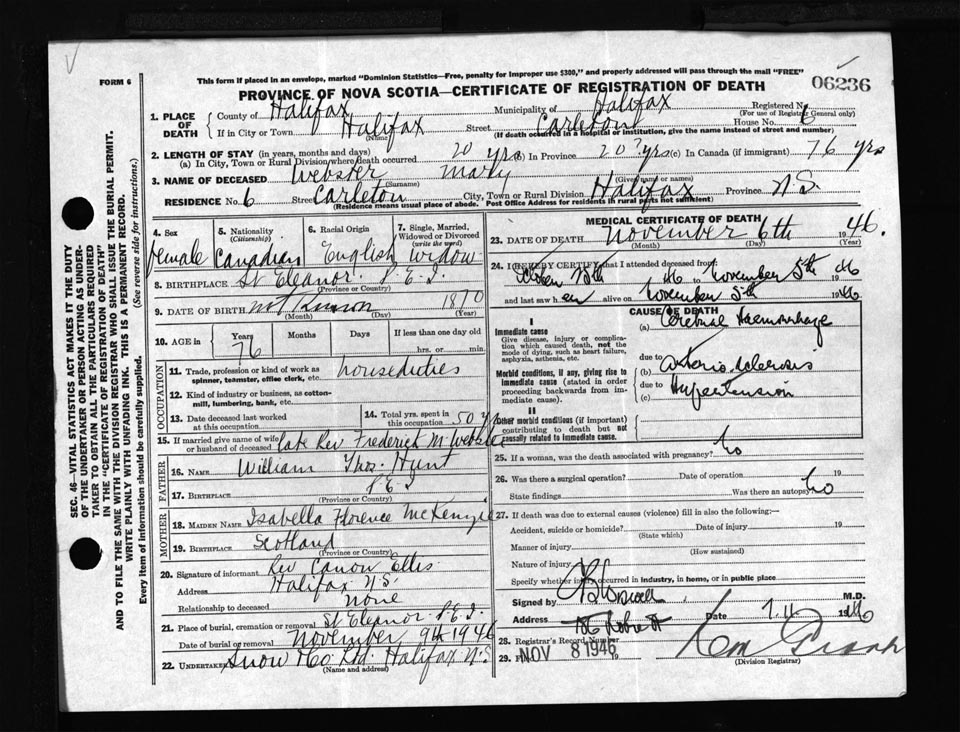 FORM 6
This form if placed in an envelope, marked "Dominion Statistics—Free, penalty for improper use $300," and properly addressed will pass through the mail "FREE"
06236
PROVINCE OF NOVA SCOTIA—CERTIFICATE OF REGISTRATION OF DEATH
SEC. 46—VITAL STATISTICS ACT MAKES IT THE DUTY
OF THE UNDERTAKER OR PERSON ACTING AS UNDER-
TAKER TO OBTAIN ALL THE PARTICULARS REQUIRED
IN THE "CERTIFICATE OF REGISTRATION OF DEATH"
AND TO FILE THE SAME WITH THE DIVISION REGISTRAR WHO SHALL ISSUE THE BURIAL PERMIT.
WRITE PLAINLY WITH UNFADING INK. THIS IS A PERMANENT RECORD.
Every item of information should be carefully supplied. (See reverse side for instructions.)
1. PLACE OF DEATH County of Halifax Municipality of Halifax Registered No.
(For use of Registrar General only)
If in City or Town Halifax Street Carleton House No. 6
(Name) (If death occurred in a hospital or institution, give the name instead of street and number)
2. LENGTH OF STAY (in years, months and days)
(a) In City, Town or Rural Division where death occurred 20 yrs (b) In Province 20? yrs (c) In Canada (if immigrant) 76 yrs
3. NAME OF DECEASED Webster Mary
(Surname) (Given name or names)
RESIDENCE No. 6 Street Carleton City, Town or Rural Division Halifax Province N.S.
(Residence means usual place of abode. Post Office Address for residents in rural parts not sufficient)
4. Sex 5. Nationality (Citizenship) 6. Racial Origin 7. Single, Married, Widowed or Divorced (write the word)
female Canadian English Widow
8. BIRTHPLACE St Eleanor P.E.I.
(Province or Country)
9. DATE OF BIRTH not known 1870
(Month) (Day) (Year)
10. AGE in Years Months Days If less than one day old
76 hrs. or min.
OCCUPATION
11. Trade, profession or kind of work as spinner, teamster, office clerk, etc. house duties
12. Kind of industry or business, as cotton-mill, lumbering, bank, etc.
13. Date deceased last worked at this occupation 14. Total yrs. spent in this occupation 50 yrs
15. If married give name of wife or husband of deceased late Rev Frederick M Webster
FATHER
16. NAME William Thos. Hunt
17. BIRTHPLACE P.E.I
(Province or Country)
MOTHER
18. MAIDEN NAME Isabella Florence McKenzie
19. BIRTHPLACE Scotland
(Province or Country)
20. Signature of informant Rev Canon Ellis
Address Halifax N.S.
Relationship to deceased None
21. Place of burial, cremation or removal St Eleanor P.E.I.
Date of burial or removal November 9th 1946
22. UNDERTAKER Snow & Co Ltd. Halifax N.S
(Name and address)
MEDICAL CERTIFICATE OF DEATH
23. DATE OF DEATH November 6th 1946.
(Month) (Day) (Year)
24. I HEREBY CERTIFY that I attended deceased from:
46 to November 5th 1946
and last saw her alive on November 5th 1946
CAUSE OF DEATH
I
Immediate cause
Give disease, injury or complication which caused death, not the mode of dying, such as heart failure, asphyxia, asthenia, etc.
(a) Cerebral Haemorrhage
due to
Morbid conditions, if any, giving rise to immediate cause (stated in order proceeding backwards from immediate cause).
(b) Arterio sclerosis
due to
(c) Hypertension
II
Other morbid conditions (if important) contributing to death but not causally related to immediate cause.
25. If a woman, was the death associated with pregnancy? No
26. Was there a surgical operation? Date of operation 19
State findings Was there an autopsy? No
27. If death was due to external causes (violence) fill in also the following:—
Accident, suicide or homicide? Date of injury 19
(State which)
Manner of injury
(How sustained)
Nature of injury
Specify whether injury occurred in industry, in home, or in public place
Signed by M.D.
Address 186 Robie St Date 7.11 1946
28. Registrar's Record Number
29. Filed NOV 8 1946 19
(Division Registrar)